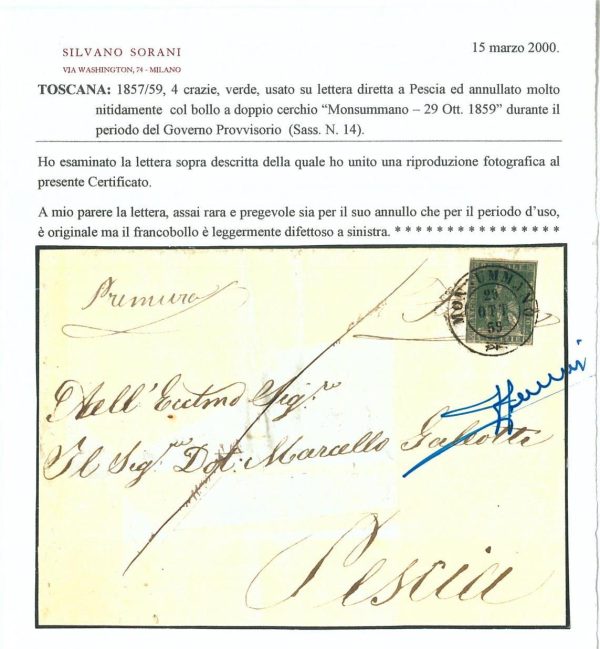 SILVANO SORANI
VIA WASHINGTON, 74 - MILANO
15 marzo 2000.
TOSCANA: 1857/59, 4 crazie, verde, usato su lettera diretta a Pescia ed annullato molto
nitidamente col bollo a doppio cerchio “Monsummano – 29 Ott. 1859” durante il
periodo del Governo Provvisorio (Sass. N. 14).
Ho esaminato la lettera sopra descritta della quale ho unito una riproduzione fotografica al
presente Certificato.
A mio parere la lettera, assai rara e pregevole sia per il suo annullo che per il periodo d’uso,
è originale ma il francobollo è leggermente difettoso a sinistra. * * * * * * * * * * * * * * * *
Premura
MONSUMMANO
29
OTT
59
Dell'Ecctmo Sigre
Il Sigre Dot. Marcello Galeotti
Pescia